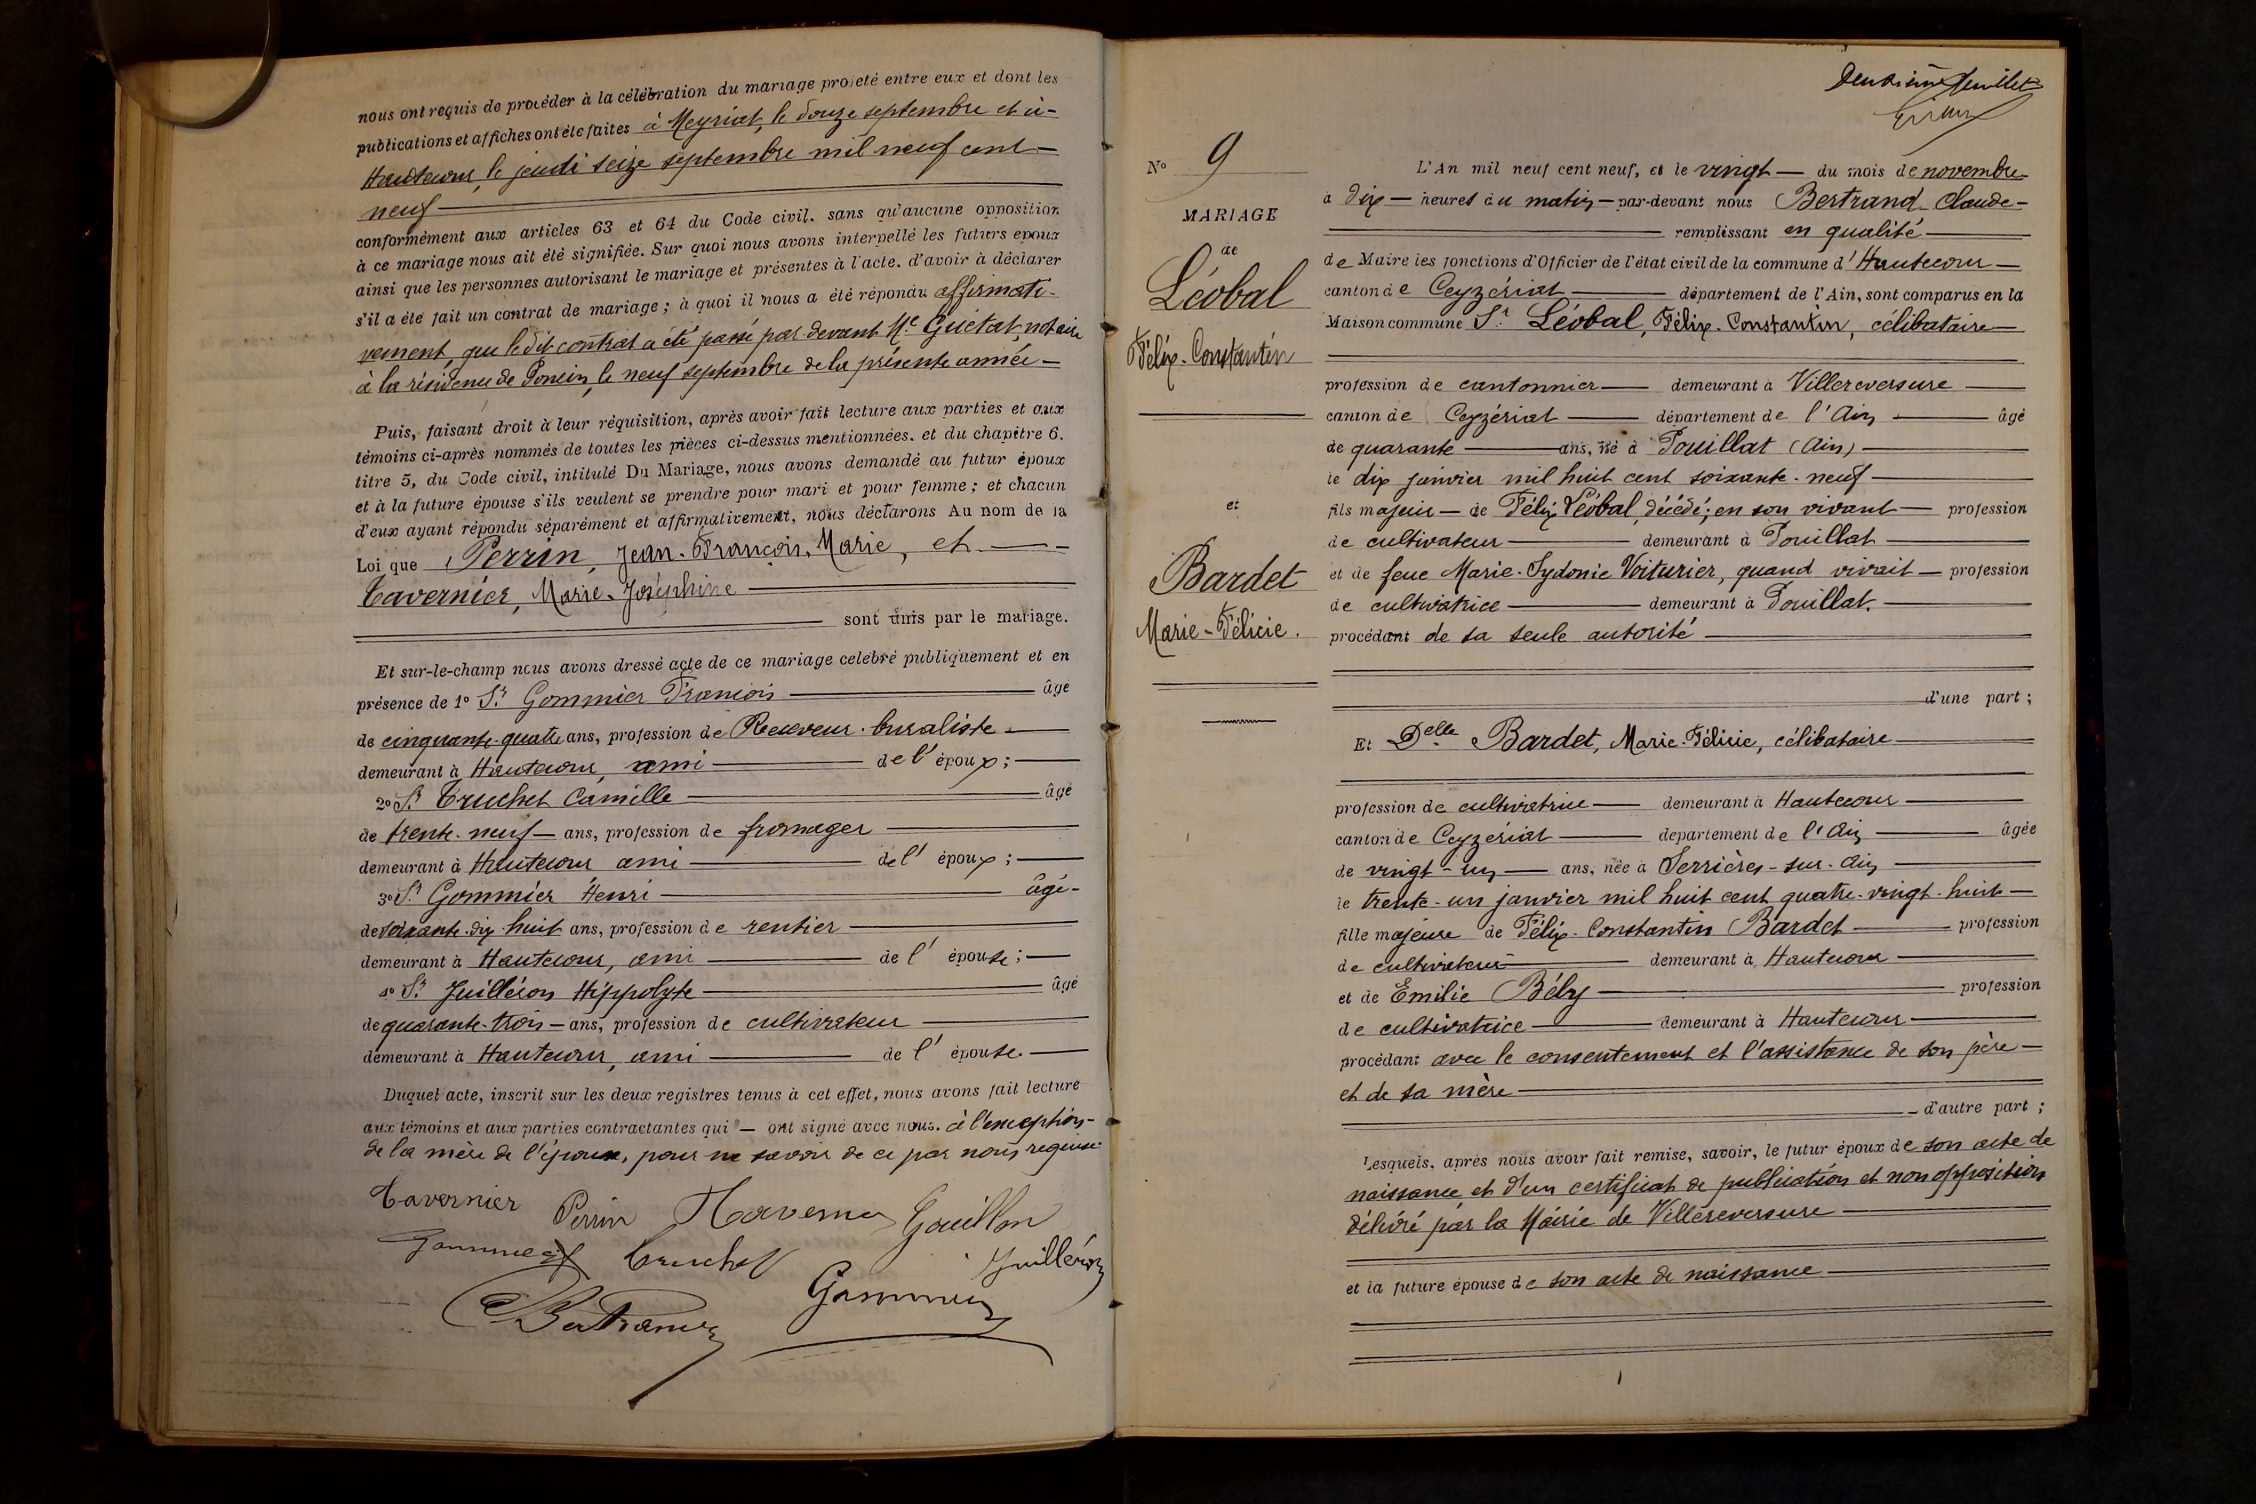 nous ont requis de procéder à la célébration du mariage projeté entre eux et dont les
publications et affiches ont été faites à Meyriat, le douze septembre et à-
Hautecour, le jeudi seize septembre mil neuf cent-
neuf
conformément aux articles 63 et 64 du Code civil. sans qu'aucune opposition
à ce mariage nous ait été signifiée. Sur quoi nous avons interpellé les futurs epoux
ainsi que les personnes autorisant le mariage et présentes à l'acte. d'avoir à déclarer
s'il a été fait un contrat de mariage ; à quoi il nous a été répondu affirmati-
vement, que le dit contrat a été passé par devant Me Guictat, notaire
à la résidence de Poncin, le neuf septembre de la présente année-
Puis, faisant droit à leur réquisition, après avoir fait lecture aux parties et aux
témoins ci-après nommés de toutes les pièces ci-dessus mentionnées. et du chapitre 6.
titre 5, du Code civil, intitulé Du Mariage, nous avons demandé au futur époux
et à la future épouse s'ils veulent se prendre pour mari et pour femme ; et chacun
d'eux ayant répondu séparément et affirmativement, nous déclarons Au nom de la
Loi que Perrin, Jean-François-Marie, et
Tavernier, Marie-Joséphine
sont unis par le mariage.
Et sur-le-champ nous avons dressé acte de ce mariage celébré publiquement et en
présence de 1o Sr Gommier François âgé
de cinquante-quatre ans, profession de Receveur-buraliste
demeurant à Hautecour, ami de l'époux ;
2o Sr Truchet Camille âgé
de trente-neuf ans, profession de fromager
demeurant à Hautecour ami de l'époux ;
3o Sr Gommier Henri âgé-
de soixante-dix-huit ans, profession de rentier
demeurant à Hautecour, ami de l'épouse ;
4o Sr Juilléron Hippolyte âgé
de quarante-trois ans, profession de cultivateur
demeurant à Hautecour, ami de l'épouse.
Duquel acte, inscrit sur les deux registres tenus à cet effet, nous avons fait lecture
aux témoins et aux parties contractantes qui ont signé avec nous. à l'exception-
de la mère de l'époux, pour ne savoir de ce par nous requise
Tavernier Perrin Gouillon
Truchet Juilléron
Gommier
Bertrand
Deuxième feuillet
No 9
MARIAGE
de
Léobal
Félix-Constantin
et
Bardet
Marie-Félicie.
L'An mil neuf cent neuf, et le vingt du mois de novembre-
à dix heures du matin par-devant nous Bertrand Claude-
remplissant en qualité
de Maire les fonctions d'Officier de l'état civil de la commune d'Hautecour
canton de Ceyzériat département de l'Ain, sont comparus en la
Maison commune Sr Léobal, Félix-Constantin, célibataire
profession de cantonnier demeurant à Villereversure
canton de Ceyzériat département de l'Ain âgé
de quarante ans, né à Pouillat (Ain)
le dix janvier mil huit cent soixante-neuf
fils majeur de Félix Léobal, décédé; en son vivant profession
de cultivateur demeurant à Pouillat
et de feue Marie-Sydonie Voiturier, quand vivait profession
de cultivatrice demeurant à Pouillat.
procédant de sa seule autorité
d'une part ;
Et Delle Bardet, Marie-Félicie, célibataire
profession de cultivatrice demeurant à Hautecour
canton de Ceyzériat departement de l'Ain âgée
de vingt-un ans, née à Serrières-sur-Ain
le trente-un janvier mil huit cent quatre-vingt-huit
fille majeure de Félix-Constantin Bardet profession
de cultivateur demeurant à Hautecour
et de Emilie Bély profession
de cultivatrice demeurant à Hautecour
procédant avec le consentement et l'assistance de son père
et de sa mère
d'autre part ;
Lesquels, après nous avoir fait remise, savoir, le futur époux de son acte de
naissance et d'un certificat de publication et non opposition
délivré par la Mairie de Villereversure
et la future épouse de son acte de naissance